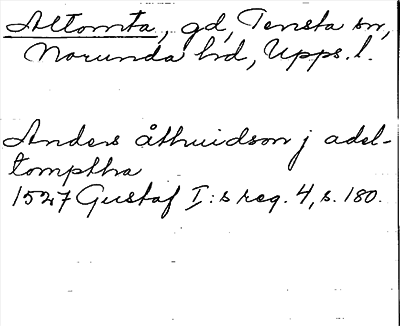 Altomta, gd, Tensta sn,
Norunda hd, Upps. l.
Anders åthuidson j adel-
tomptha
1527 Gustaf I:s reg. 4, s. 180.